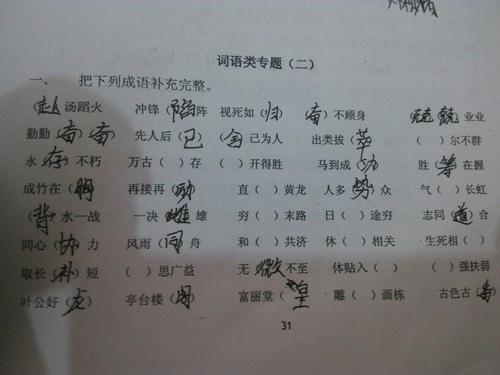 词语类专题（二）
一、 把下列成语补充完整。
（赴）汤蹈火 冲锋（陷）阵 视死如（归） （奋）不顾身 （兢兢）业业
勤勤（奋奋） 先人后（己） （舍）己为人 出类拔（萃） （ ）尔不群
永（存）不朽 万古（ ）存 （ ）开得胜 马到成（功） 胜（ ）在握
成竹在（胸） 再接再（ ） 直（ ）黄龙 人多（势）众 气（ ）长虹
（背）水一战 一决（雌）雄 穷（ ）末路 日（ ）途穷 志同（道）合
同心（协）力 风雨（同）舟 和（ ）共济 休（ ）相关 生死相（ ）
取长（补）短 （ ）思广益 无（微）不至 体贴入（ ） （ ）强扶弱
叶公好（龙） 亭台楼（阁） 富丽堂（皇） 雕（ ）画栋 古色古（香）
31